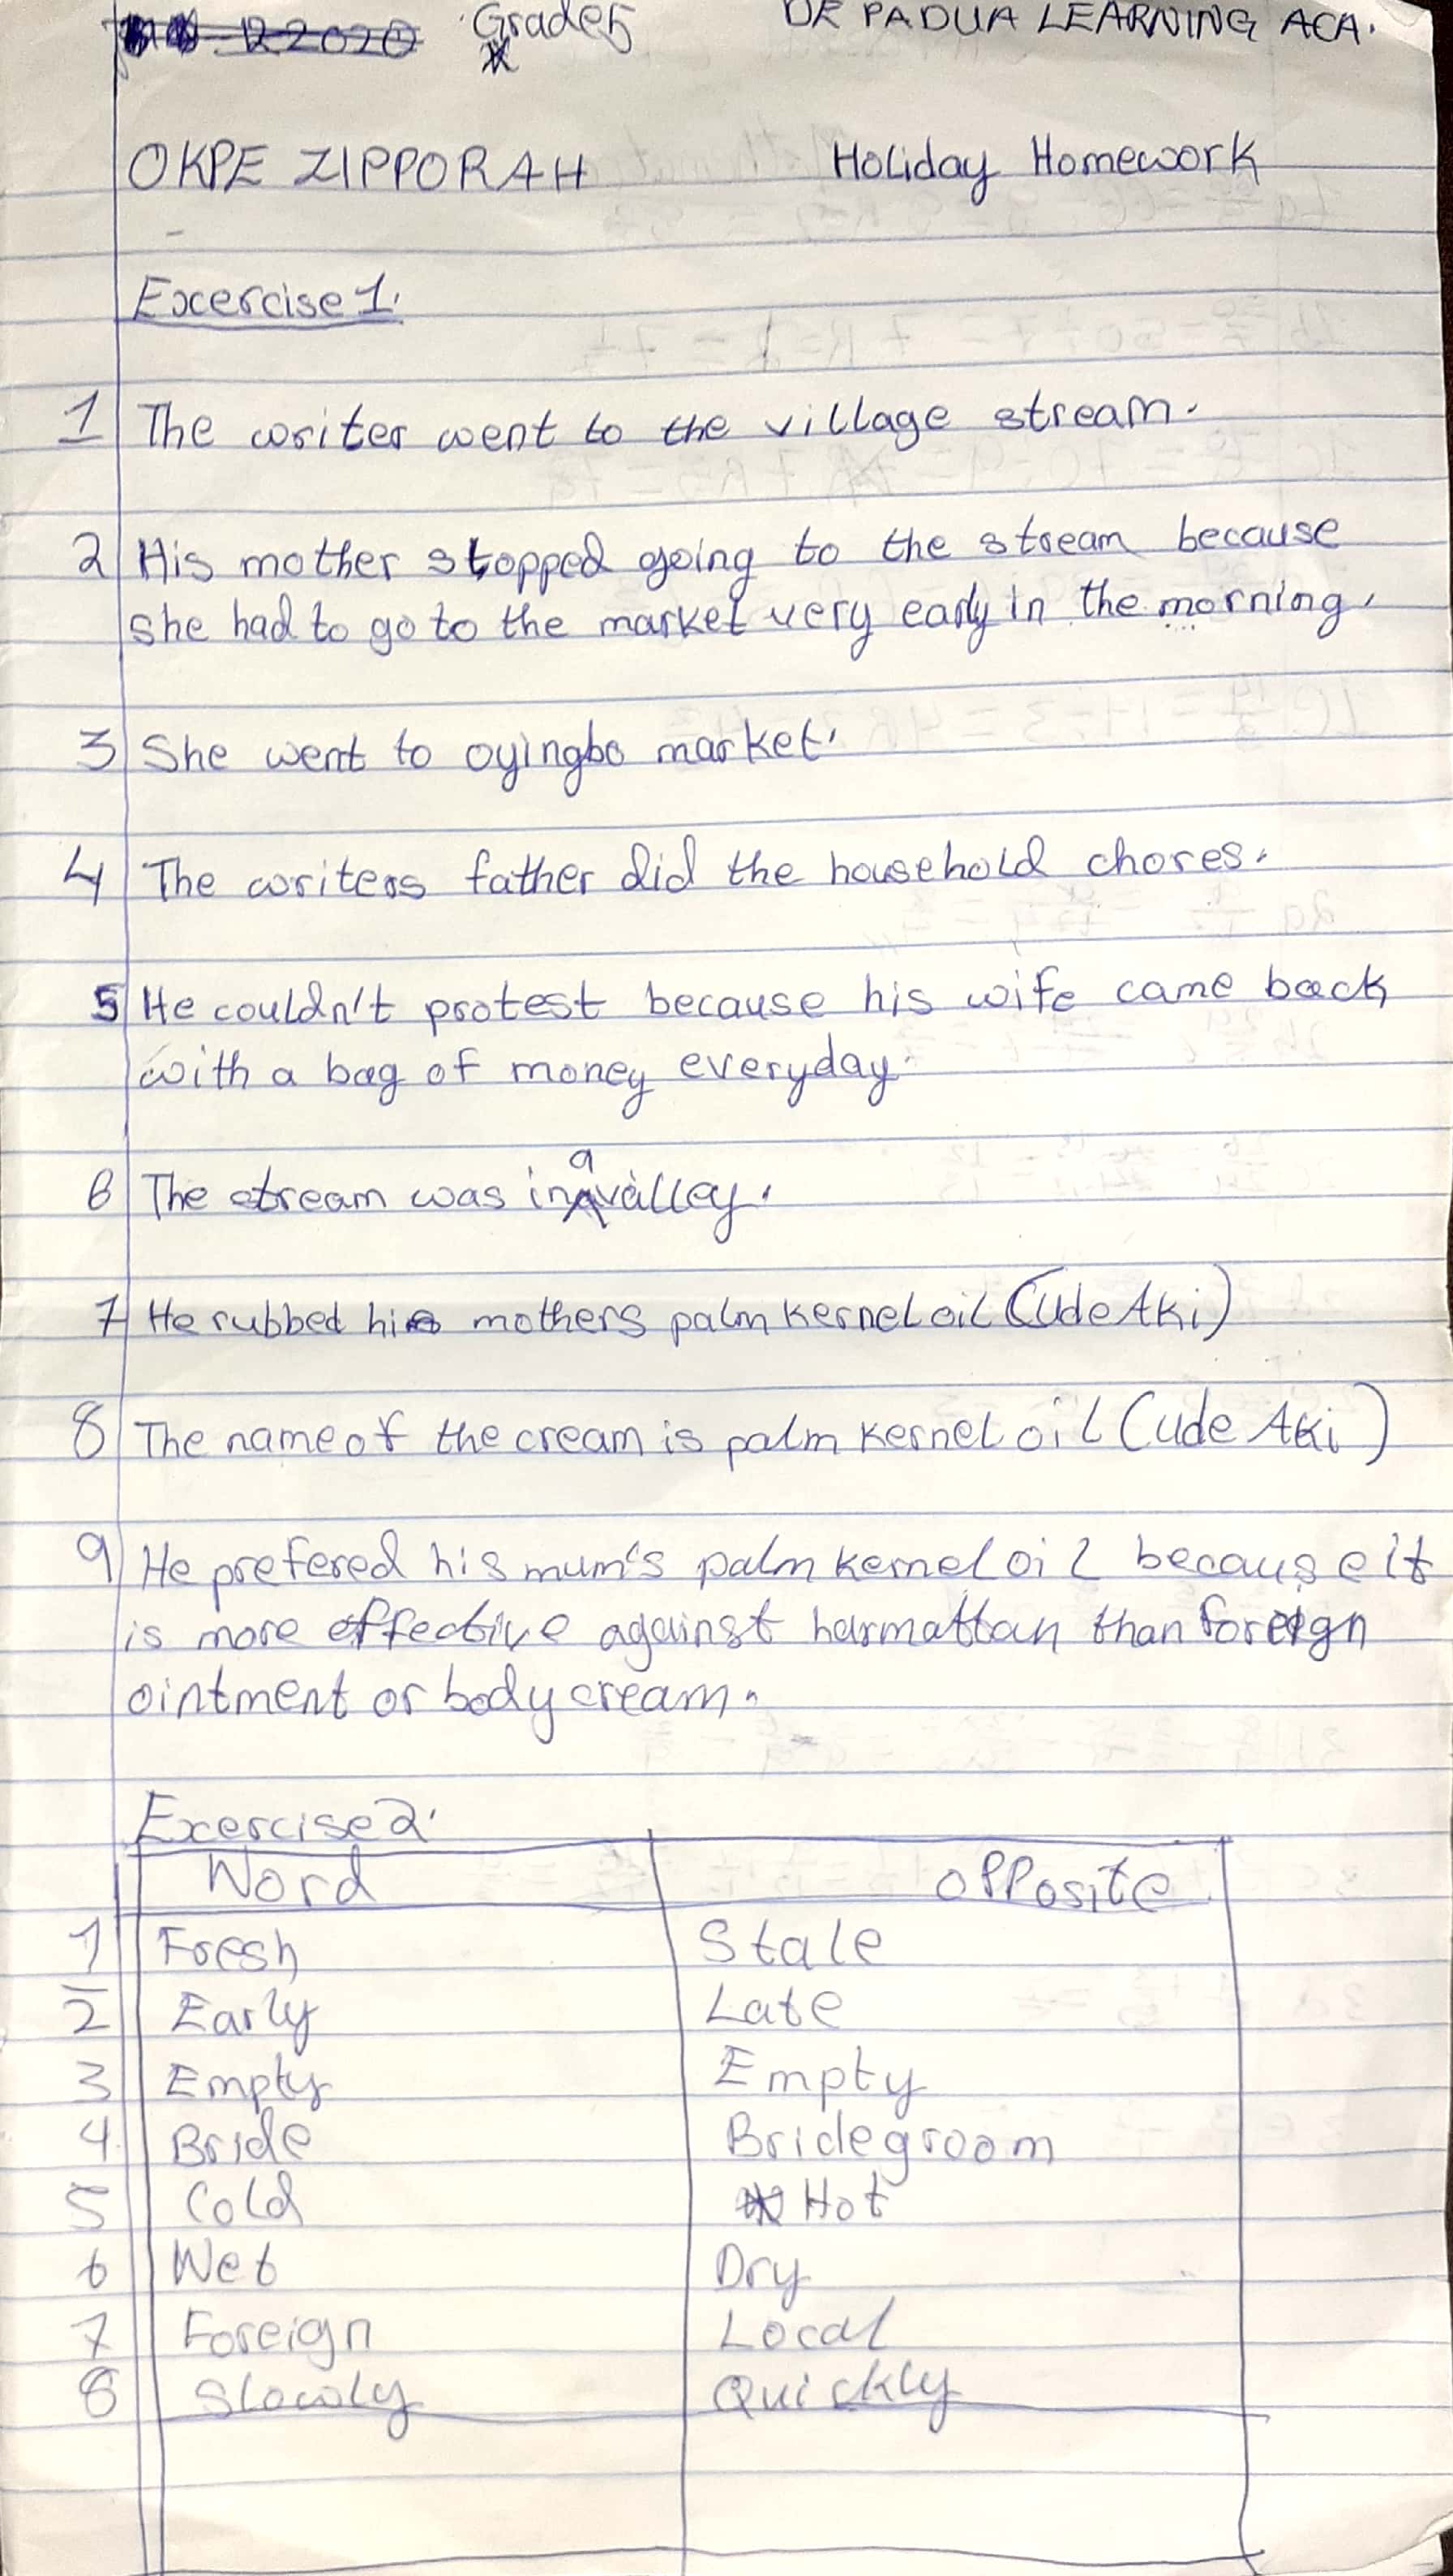 Grade5 DE PADUA LEARNING ACA.
OKPE ZIPPORAH Holiday Homework
Excercise 1.
1 The writer went to the village stream.
2 His mother stopped going to the stream because
she had to go to the market very early in the morning.
3 She went to oyingbo market.
4 The writers father did the household chores.
5 He couldn't protest because his wife came back
with a bag of money everyday.
6 The stream was in a valley.
7 He rubbed his mothers palm kernel oil (Ude Aki)
8 The name of the cream is palm kernel oil (ude Aki)
9 He prefered his mum's palm kernel oil because it
is more effective against harmattan than foreign
ointment or body cream.
Excercise 2.
Word opposite
1 Fresh Stale
2 Early Late
3 Empty Empty
4 Bride Bridegroom
5 Cold Hot
6 Wet Dry
7 Foreign Local
8 Slowly Quickly